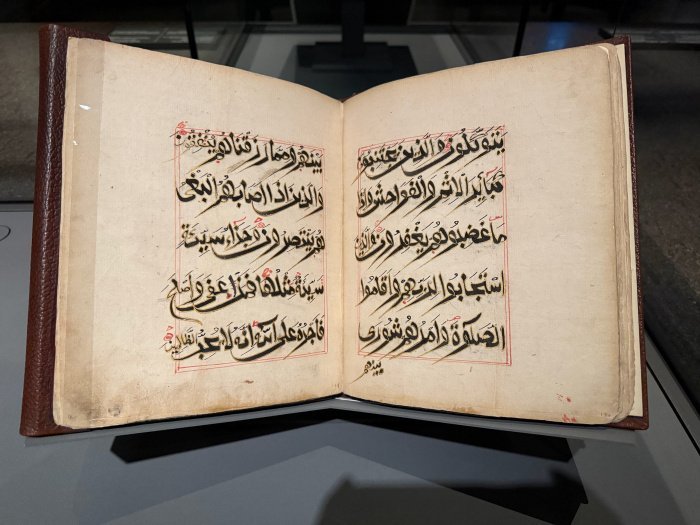 يتوكلون والذين يجتنبون
كباير الاثم والفواحش واذا
ما غضبوا هم يغفرون والذين
استجابوا لربهم واقاموا
الصلوة وامرهم شورى
بينهم
بينهم ومما رزقناهم ينفقون
والذين اذا اصابهم البغى
هم ينتصرون وجزاء سيئة
سيئة مثلها فمن عفى واصلح
فاجره على الله انه لا يحب الظالمين